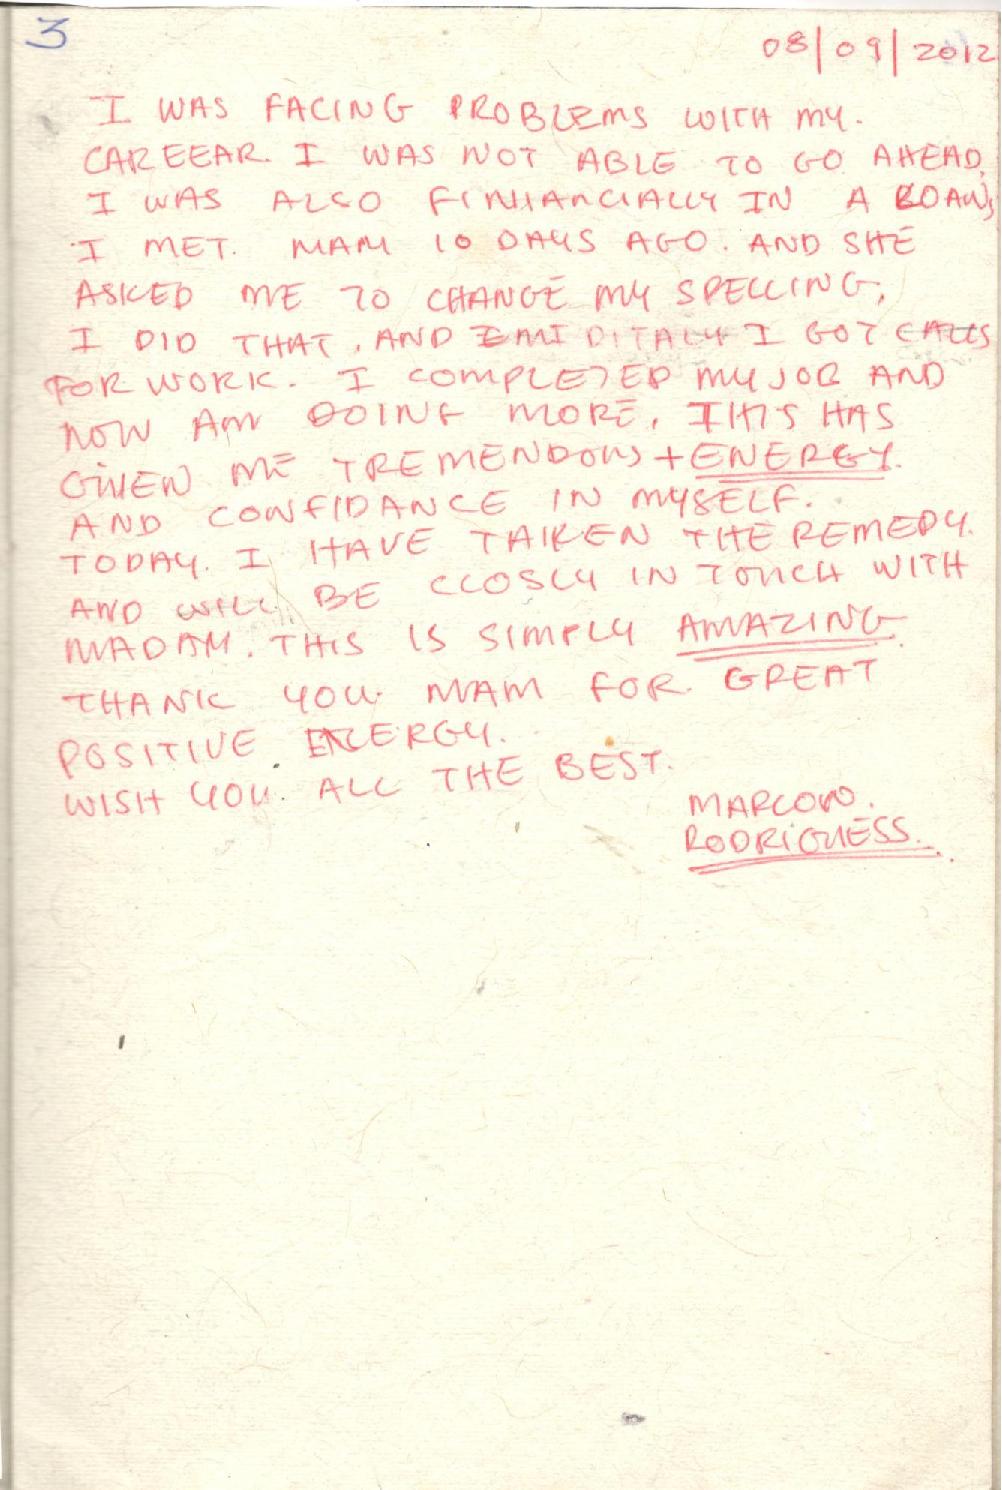 3
08/09/2012
I WAS FACING PROBLEMS WITH MY.
CAREEAR. I WAS NOT ABLE TO GO AHEAD.
I WAS ALSO FINHANCIALLY IN A
I MET. MAM 10 DAYS AGO. AND SHE
ASKED ME TO CHANGE MY SPELLING,
I DID THAT, AND EMIDITALY I GOT CALLS
FOR WORK. I COMPLETED MY JOB AND
NOW AM DOING MORE, THIS HAS
GIVEN ME TREMENDOUS +ENERGY.
AND CONFIDANCE IN MYSELF.
TODAY. I HAVE TAIKEN THE REMEDY.
AND WILL BE CLOSLY IN TOUCH WITH
MADAM. THIS IS SIMPLY AMAZING.
THANK YOU. MAM FOR. GREAT
POSITIVE ENERGY.
WISH YOU. ALL THE BEST.
MARLON.
RODRIGUESS.